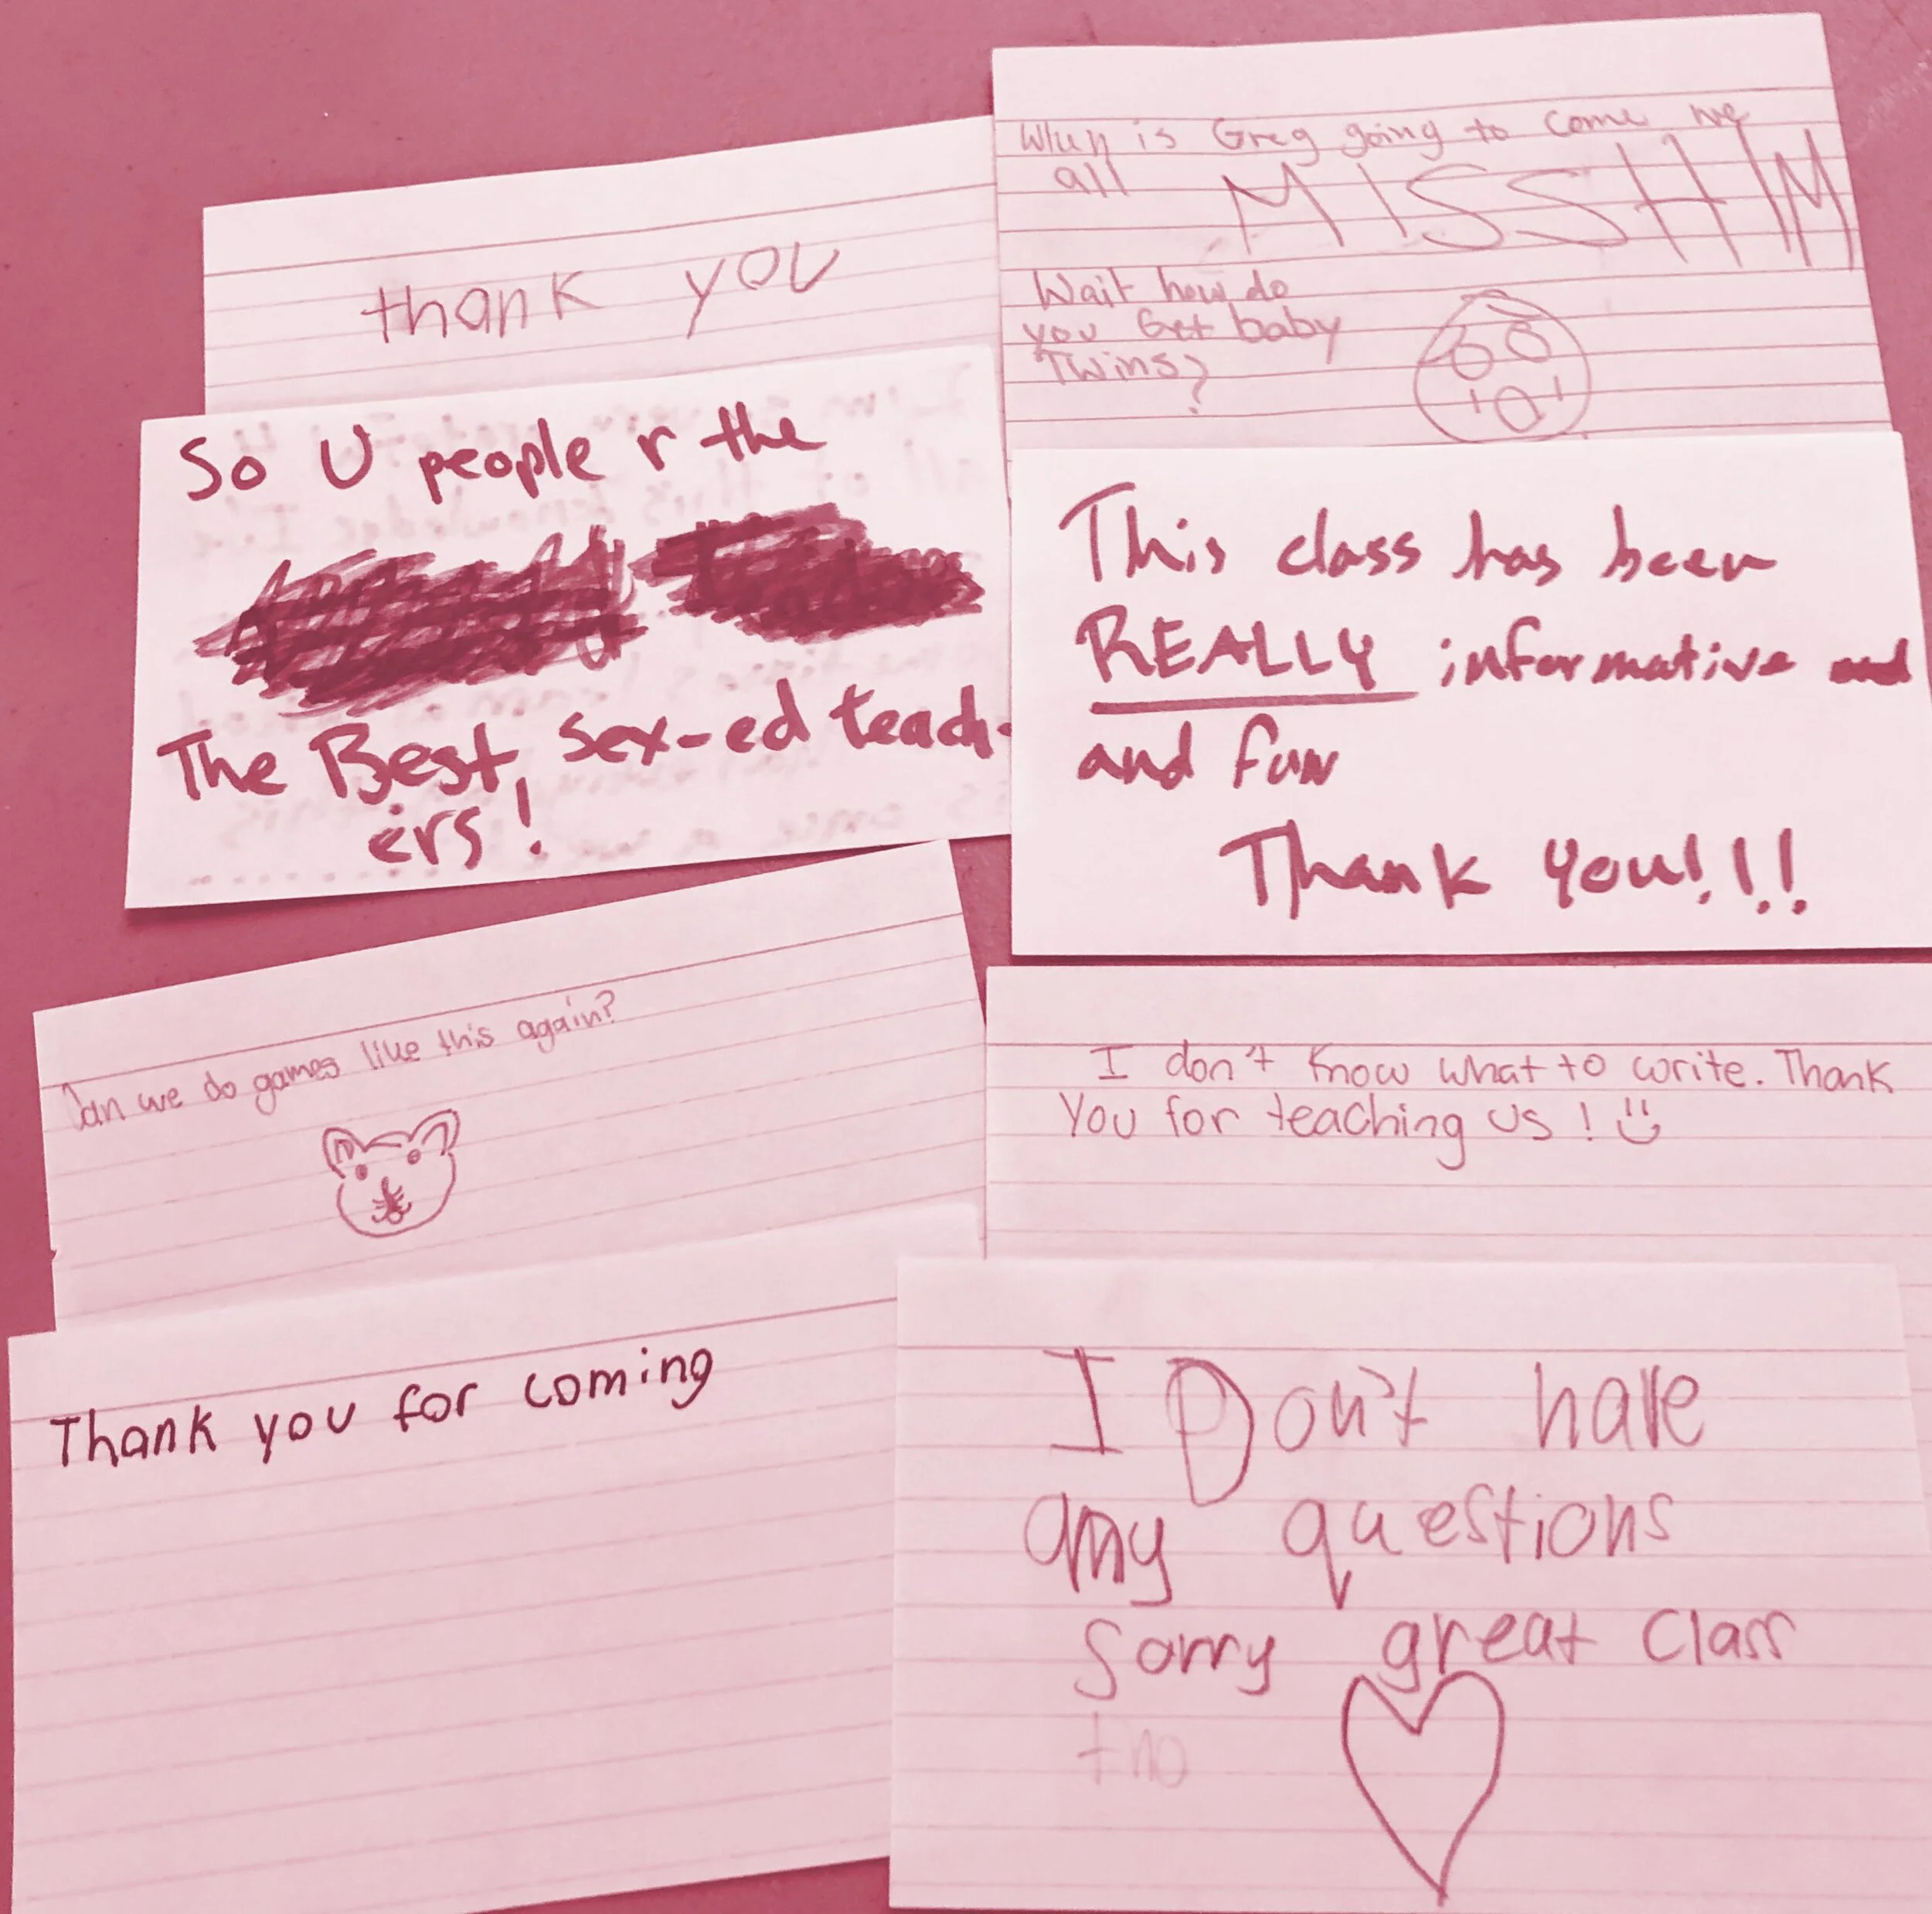 thank you
When is Greg going to come we
all MISS HIM
Wait how do
you Get baby
Twins?
So U people r the
The Best, sex-ed teach-
ers!
This class has been
REALLY informative and
and fun
Thank you!!!
Can we do games like this again?
I don't know what to write. Thank
You for teaching us! :)
Thank you for coming
I Don't have
any questions
Sorry great class
tho